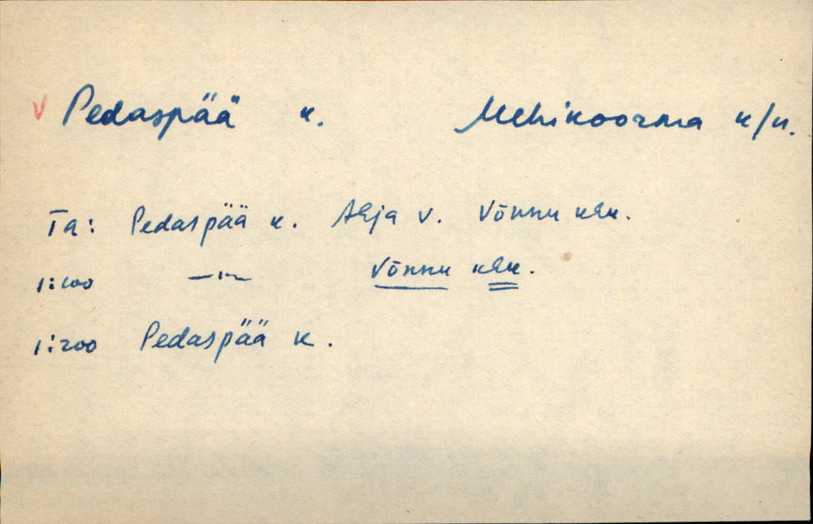 v Pedaspää k. Mehikoorma k/n.
Ta: Pedaspää k. Ahja v. Võnnu khk.
1:100 —"— Võnnu khk.
1:200 Pedaspää k.